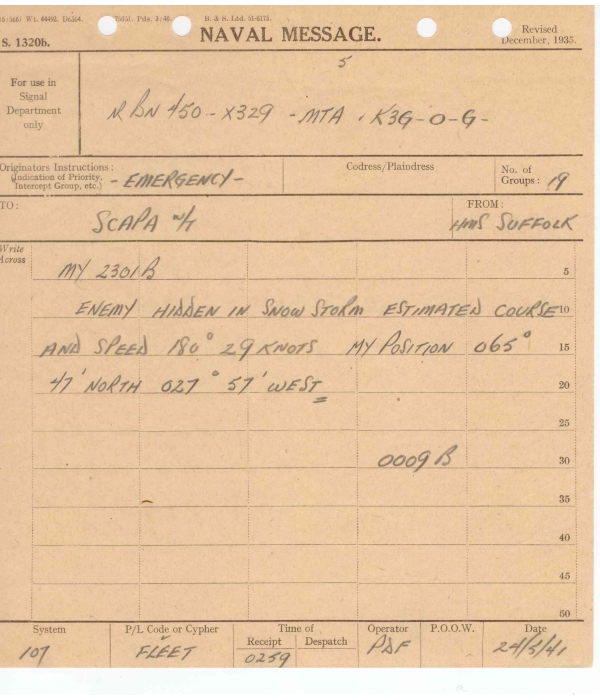 S. 1320b.
NAVAL MESSAGE.
Revised
December, 1935.
5
For use in
Signal
Department
only
N BN 450 - X329 - MTA · K3G-O-G-
Originators Instructions:
(Indication of Priority,
Intercept Group, etc.)
- EMERGENCY -
Codress/Plaindress
No. of
Groups: 19
TO:
SCAPA W/T
FROM:
HMS SUFFOLK
Write
Across
MY 2301 B
5
ENEMY HIDDEN IN SNOW STORM ESTIMATED COURSE
10
AND SPEED 180° 29 KNOTS MY POSITION 065°
15
47' NORTH 027° 57' WEST
20
25
0009 B
30
35
40
45
50
System
107
P/L Code or Cypher
FLEET
Time of
Receipt
0259
Despatch
Operator
PDF
P.O.O.W.
Date
24/5/41